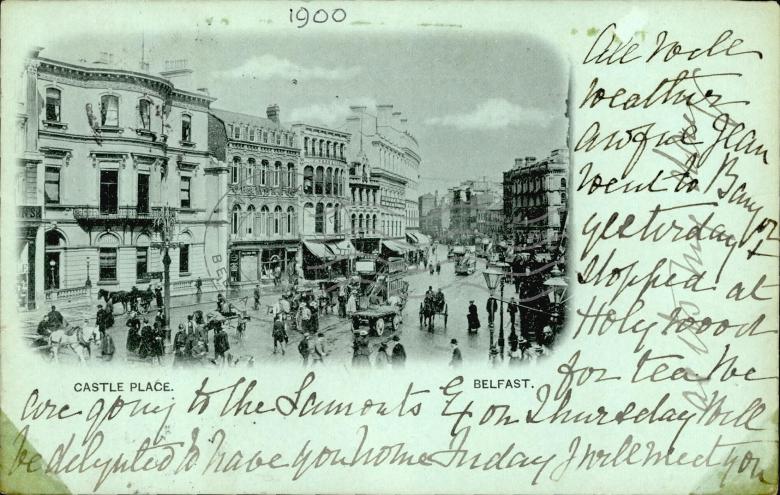 1900
All well
weather
awful Jean
went to Bangor
yesterday &
stopped at
Holywood
for tea We
CASTLE PLACE.
BELFAST.
are going to the Lamonts on Thursday Will
be delighted to have you home Friday I will meet you